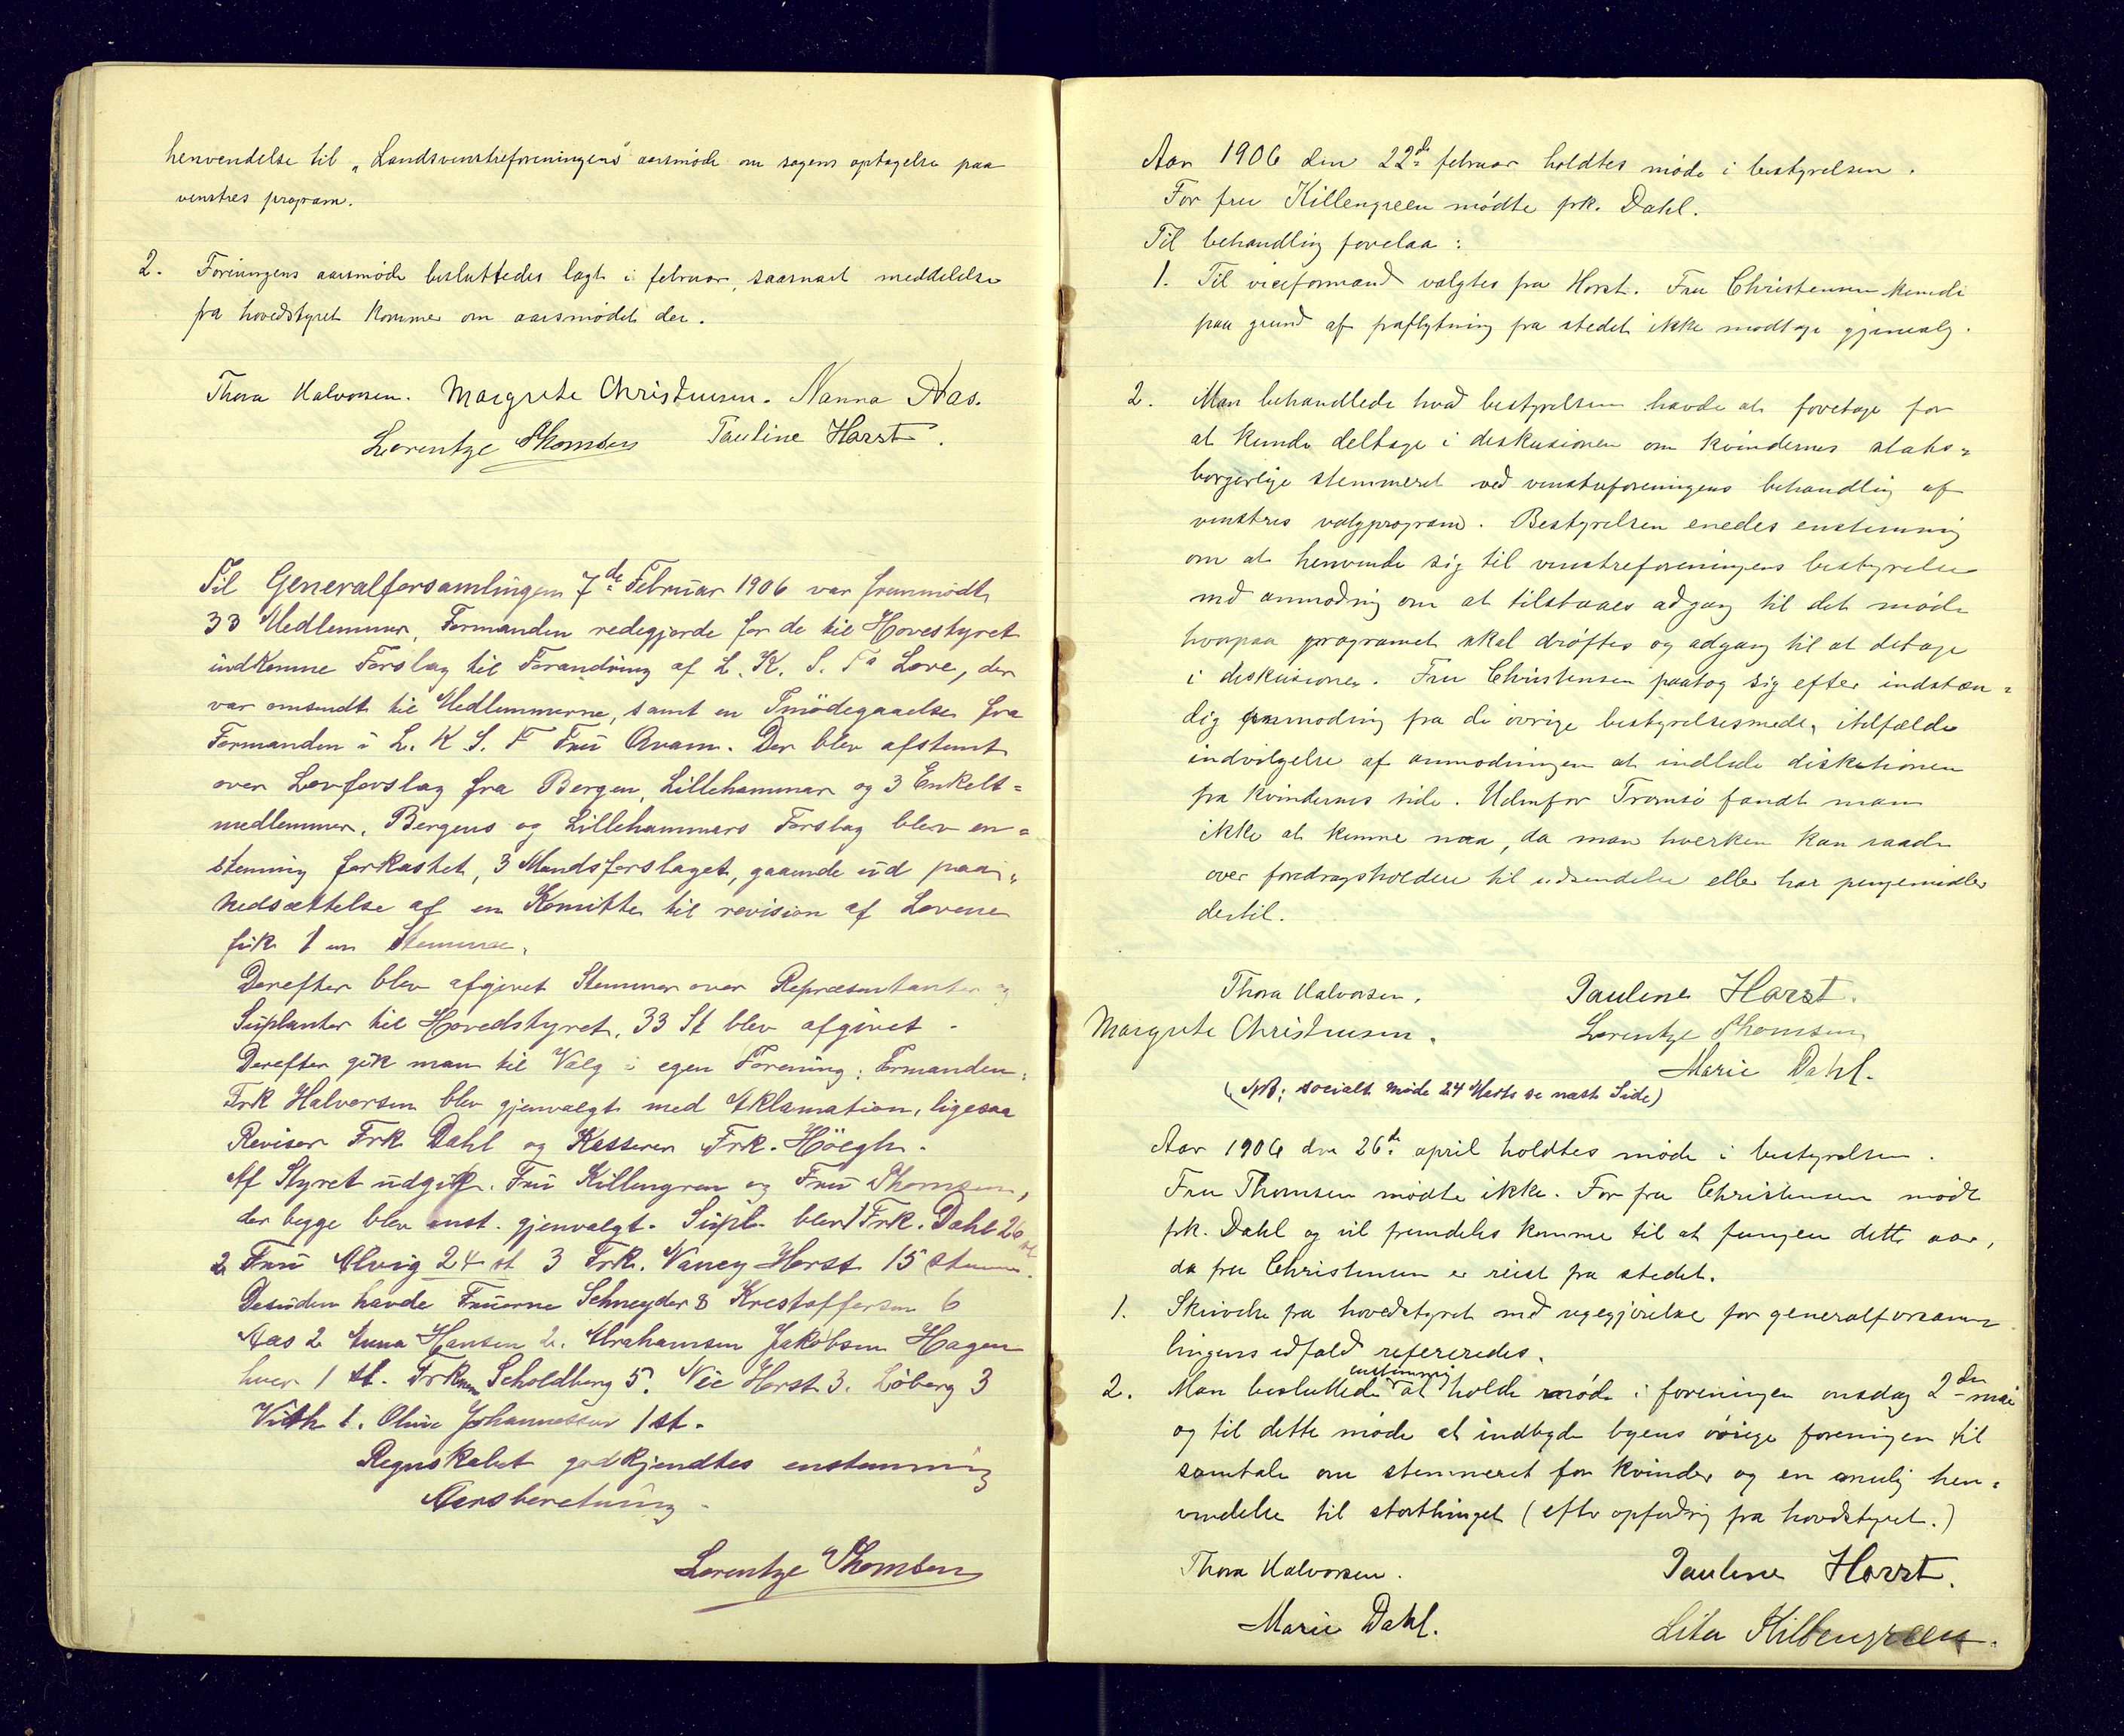 henvendelse til „Landsvenstreforeningens" aarsmøde om sagens optagelse paa
venstres program.
2. Foreningens aarsmøde besluttedes lagt i februar, saasnart meddelelse
fra hovedstyret kommer om aarsmødet der.
Thora Halvorsen. Margrete Christensen. Nanna Aas.
Lorentze Thomsen Pauline Horst.
Til Generalforsamlingen 7de Februar 1906 var fremmødt
33 Medlemmer, Formanden redegjorde for de til Hovestyret
indkomne Forslag til Forandring af L. K. S. Fs Love, der
var omsendt til Medlemmerne, samt en Imødegaaelse fra
Formanden i L. K. S. F Fru Qvam. Der blev afstemt
over Lovforslag fra Bergen, Lillehammer og 3 Enkelt=
medlemmer, Bergens og Lillehammers Forslag blev en=
stemmig forkastet, 3 Mandsforslaget, gaaende ud paa
Nedsættelse af en Komitte til revision af Lovene
fik 1 en Stemme.
Derefter blev afgivet Stemmer over Repræsentanter og
Suplanter til Hovedstyret, 33 St blev afgivet.
Derefter gik man til Valg i egen Forening: Formanden:
Frk Halvorsen blev gjenvalgt med Aklamation, ligesaa
Revisor Frk Dahl og Kasserer Frk. Höegh.
Af Styret udgik. Fru Killengren og Fru Thomsen,
der begge blev enst. gjenvalgt. Supl. blev 1 Frk. Dahl 26 st
2 Fru Alvig 24 st 3 Frk. Nancy Horst 15 Stem.
Desuden havde Fruerne Schneyder 8 Krestoffersen 6
Aas 2 Anna Hansen 2. Abrahamsen Jakobsen Hagen
hver 1 st. Frknm Scholdberg 5. Vie Horst 3. Löberg 3
Vith 1. Oline Johannessen 1 st.
Regnskabet godkjendtes enstemmig
Aarsberetning.
Lorentze Thomsen
Aar 1906 den 22de februar holdtes møde i bestyrelsen.
For fru Killengreen mødte frk. Dahl.
Til behandling forelaa:
1. Til viceformand valgtes fru Horst. Fru Christensen kunde
paa grund af fraflytning fra stedet ikke modtage gjenvalg.
2. Man behandlede hvad bestyrelsen havde at foretage for
at kunde deltage i diskusionen om kvindernes stats=
borgerlige stemmeret ved venstreforeningens behandling af
venstres valgprogram. Bestyrelsen enedes enstemmig
om at henvende sig til venstreforeningens bestyrelse
med anmodning om at tilstaaes adgang til det møde
hvorpaa programet skal drøftes og adgang til at deltage
i diskusionen. Fru Christensen paatog sig efter indstæn=
dig anmoding fra de øvrige bestyrelsesmedl. itilfælde
indvilgelse af anmodningen at indlede diskutionen
fra kvindernes side. Udenfor Tromsø fandt man
ikke at kunne naa, da man hverken kan raade
over foredragsholdere til udsendelse eller har pengemidler
dertil.
Thora Halvorsen. Pauline Horst.
Margrete Christensen. Lorentze Thomsen
Marie Dahl.
(NB: socialt møde 24 Marts se næste Side)
Aar 1906 den 26de april holdtes møde i bestyrelsen.
Fru Thomsen mødte ikke. For fru Christensen mødte
frk. Dahl og vil fremdeles komme til at fungere dette aar,
da fru Christensen er reist fra stedet.
1. Skrivelse fra hovedstyret med regegjörelse for generalforsam=
lingens udfald refereredes.
enstemmig
2. Man besluttede at holde møde i foreningen onsdag 2den mai
og til dette møde at indbyde byens øvrige foreninger til
samtale om stemmeret for kvinder og en mulig hen=
vendelse til storthinget (efter opfordring fra hovedstyret.)
Thora Halvorsen. Pauline Horst.
Marie Dahl. Lita Killengreen.